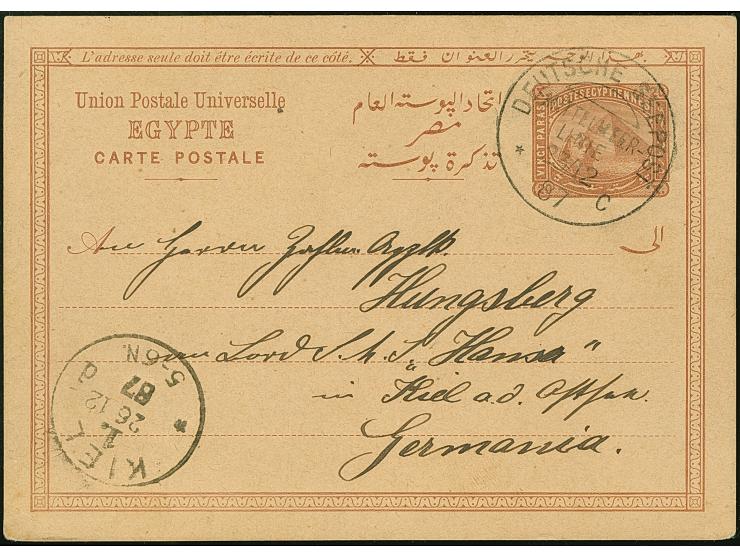 L'adresse seule doit être écrite de ce côté.
Union Postale Universelle
EGYPTE
CARTE POSTALE
اتحاد البوسته العام
مصر
تذكرة بوسته
POSTES EGYPTIENNES
VINGT PARAS
DEUTSCHE SEEPOST
LINIE
12
87
C
الى
An Herrn
Hungsberg
Lord S. M. S. „Hansa"
in Kiel a. d. Ostsee.
Germania.
KIEL
1
26 12
87
5-6N